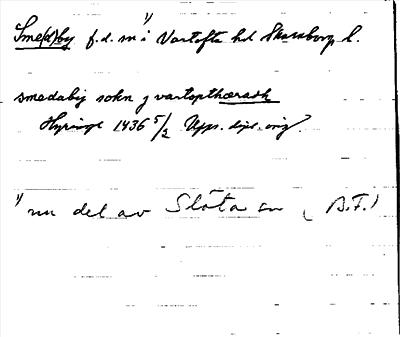 Sme(d)by f.d. sn 1) i Vartofta hd Skaraborgs l.
smedaby sokn j vartopthæradh
Hyringe 1436 5/2 Upps. dipl. orig.
1) nu del av Slöta sn (B.F.)